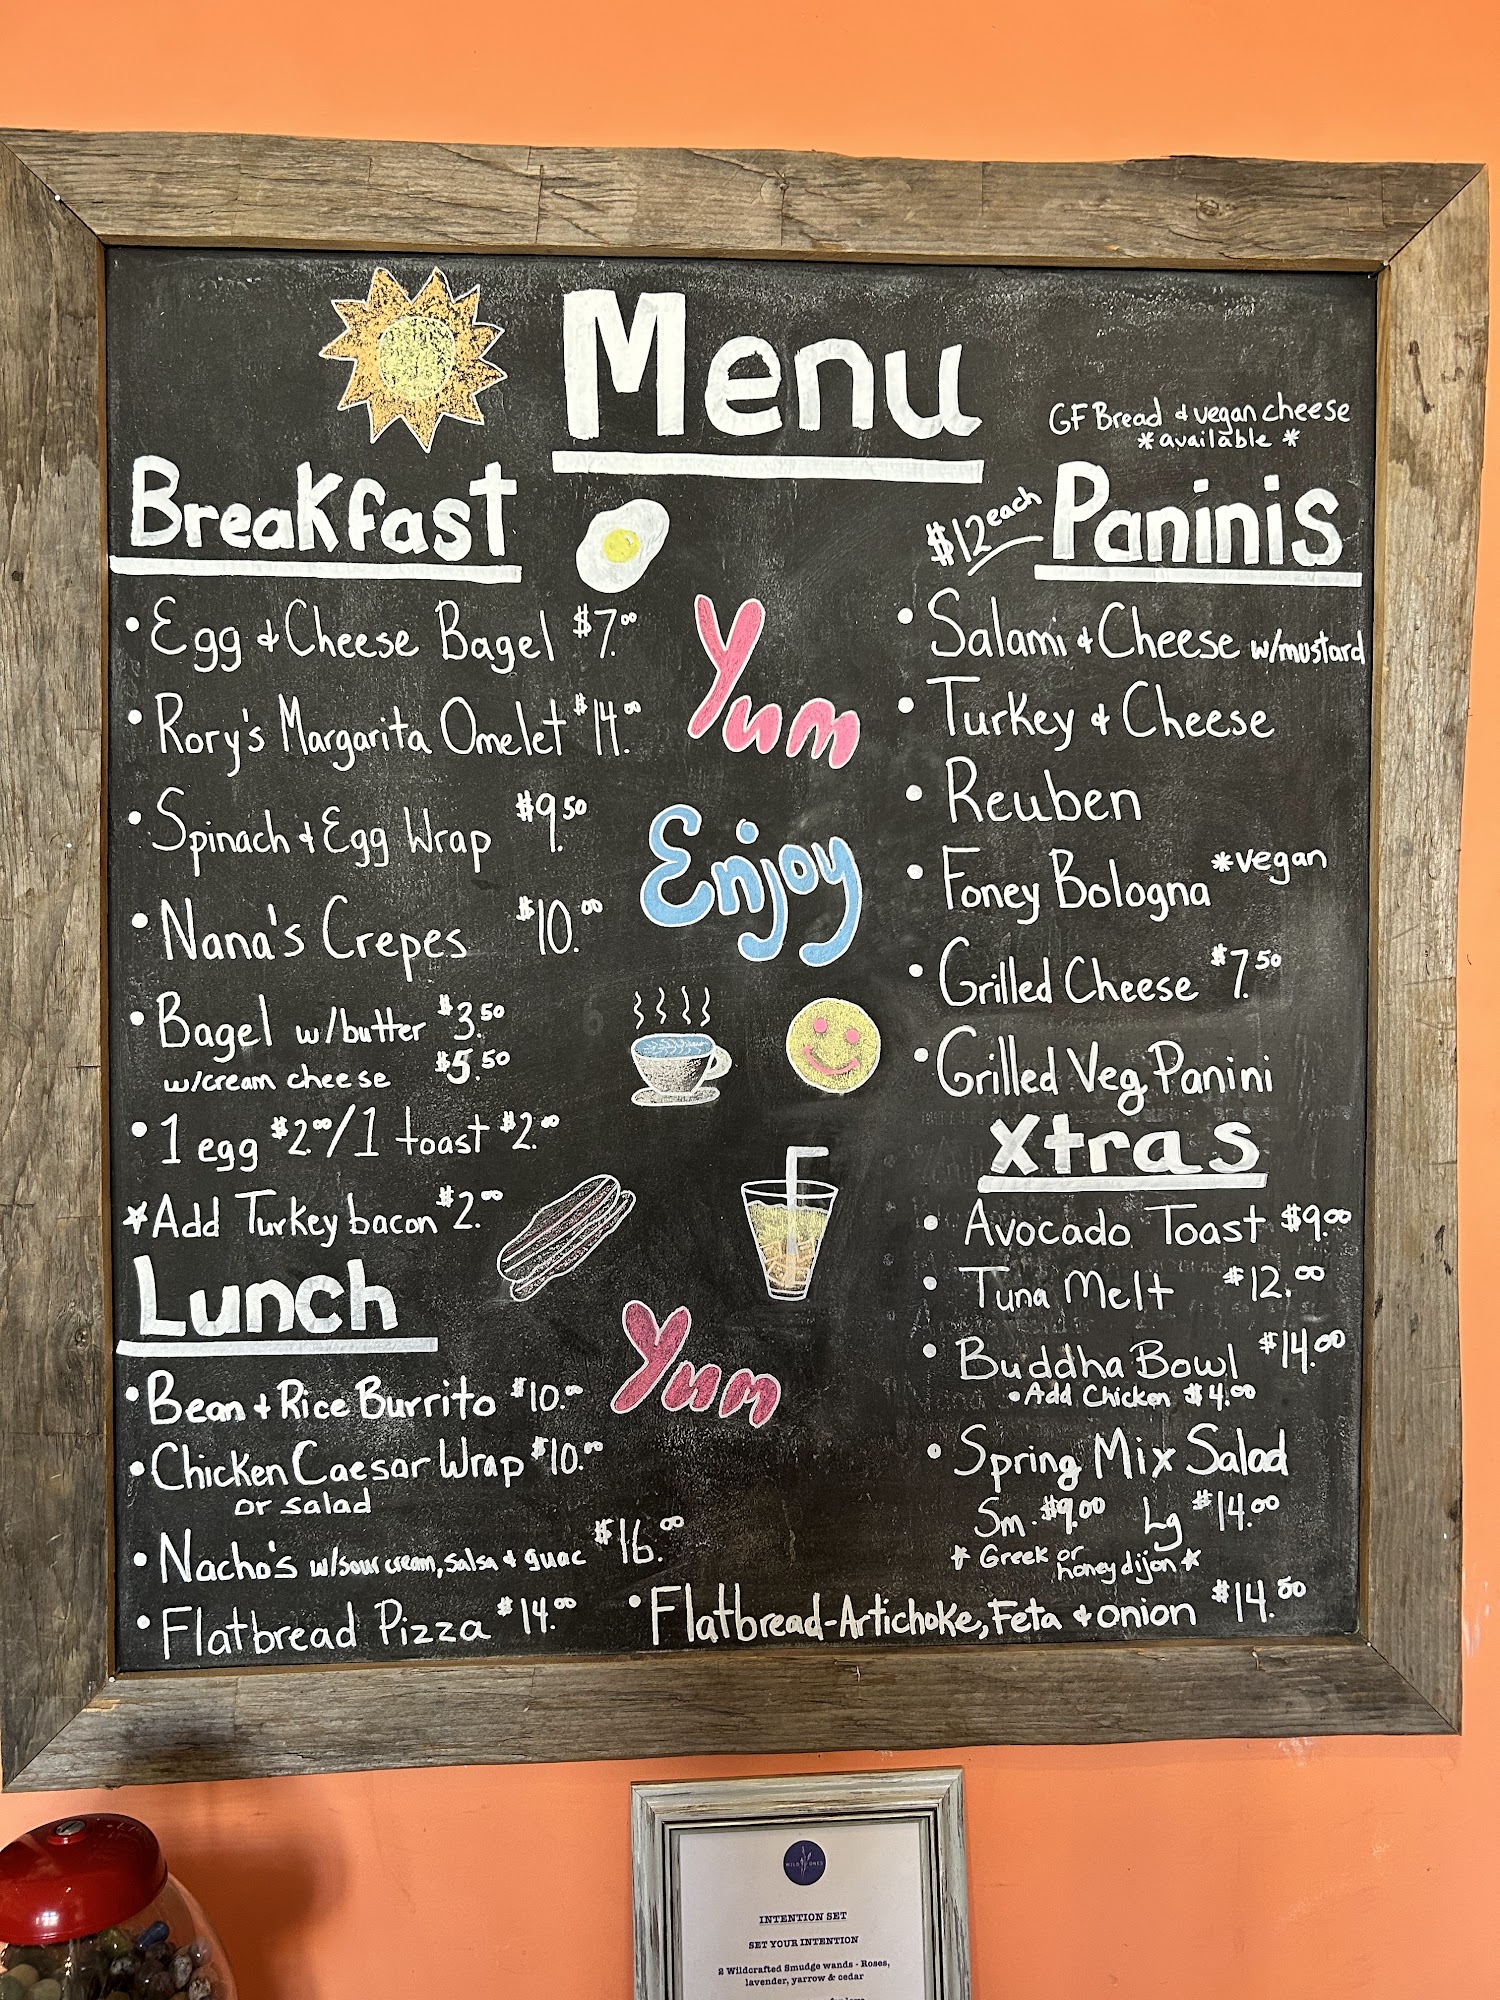 Menu
Breakfast
• Egg & Cheese Bagel $7.00
• Rory's Margarita Omelet $14.00
• Spinach & Egg Wrap $9.50
• Nana's Crepes $10.00
• Bagel w/butter $3.50
w/cream cheese $5.50
• 1 egg $2.00/1 toast $2.00
*Add Turkey bacon $2.00
Lunch
• Bean & Rice Burrito $10.00
• Chicken Caesar Wrap $10.00
or salad
• Nacho's w/sour cream, salsa & guac $16.00
• Flatbread Pizza $14.00
• Flatbread-Artichoke, Feta & onion $14.00
Yum
Enjoy
Yum
GF Bread & vegan cheese
*available*
$12 each Paninis
• Salami & Cheese w/mustard
• Turkey & Cheese
• Reuben
• Foney Bologna *vegan
• Grilled Cheese $7.50
• Grilled Veg Panini
Xtras
• Avocado Toast $9.00
• Tuna Melt $12.00
• Buddha Bowl $14.00
• Add Chicken $4.00
• Spring Mix Salad
Sm. $9.00 Lg $14.00
* Greek or
honey dijon *
WILD ONES
INTENTION SET
SET YOUR INTENTION
2 Wildcrafted Smudge wands - Roses,
lavender, yarrow & cedar